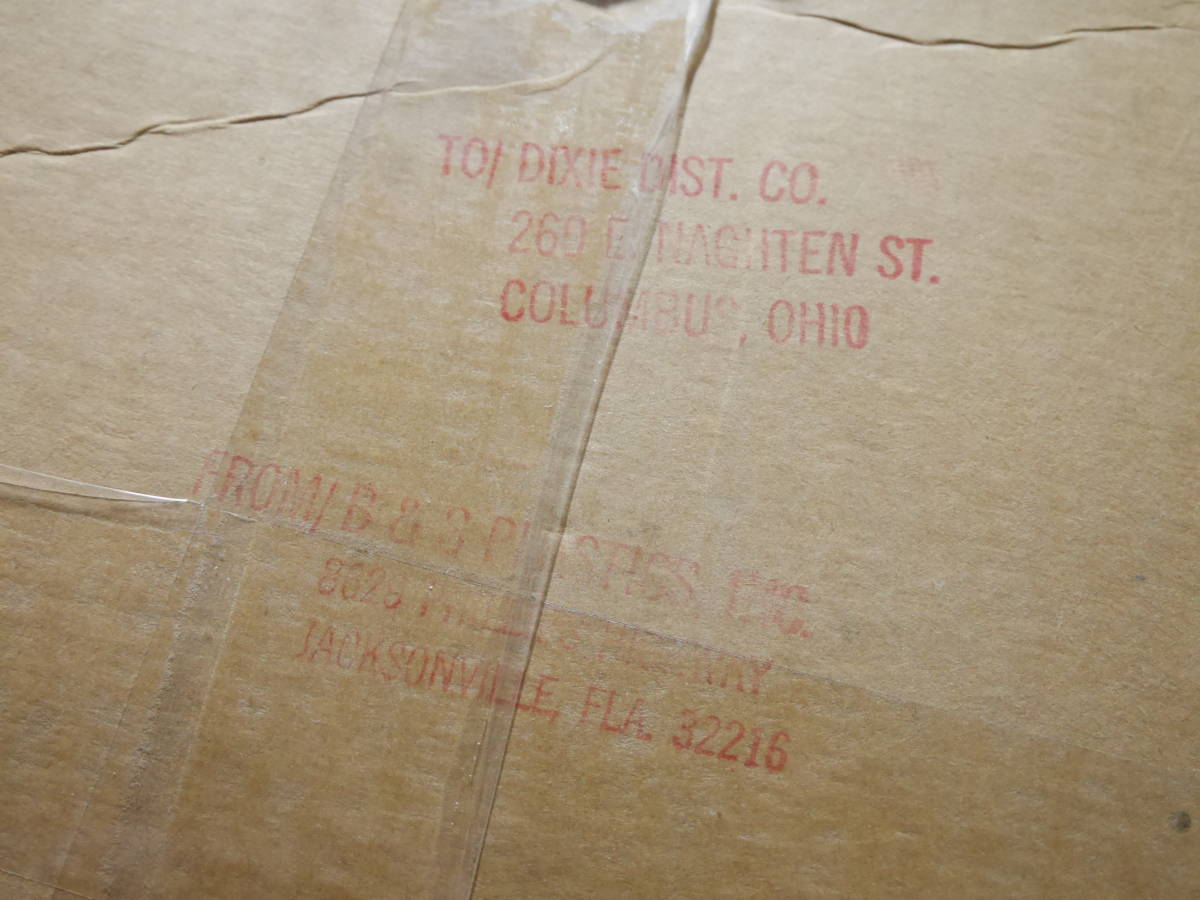 TO/ DIXIE DIST. CO.
260 E. NAGHTEN ST.
COLUMBUS, OHIO
FROM/ B & PLASTICS
JACKSONVILLE, FLA. 32216